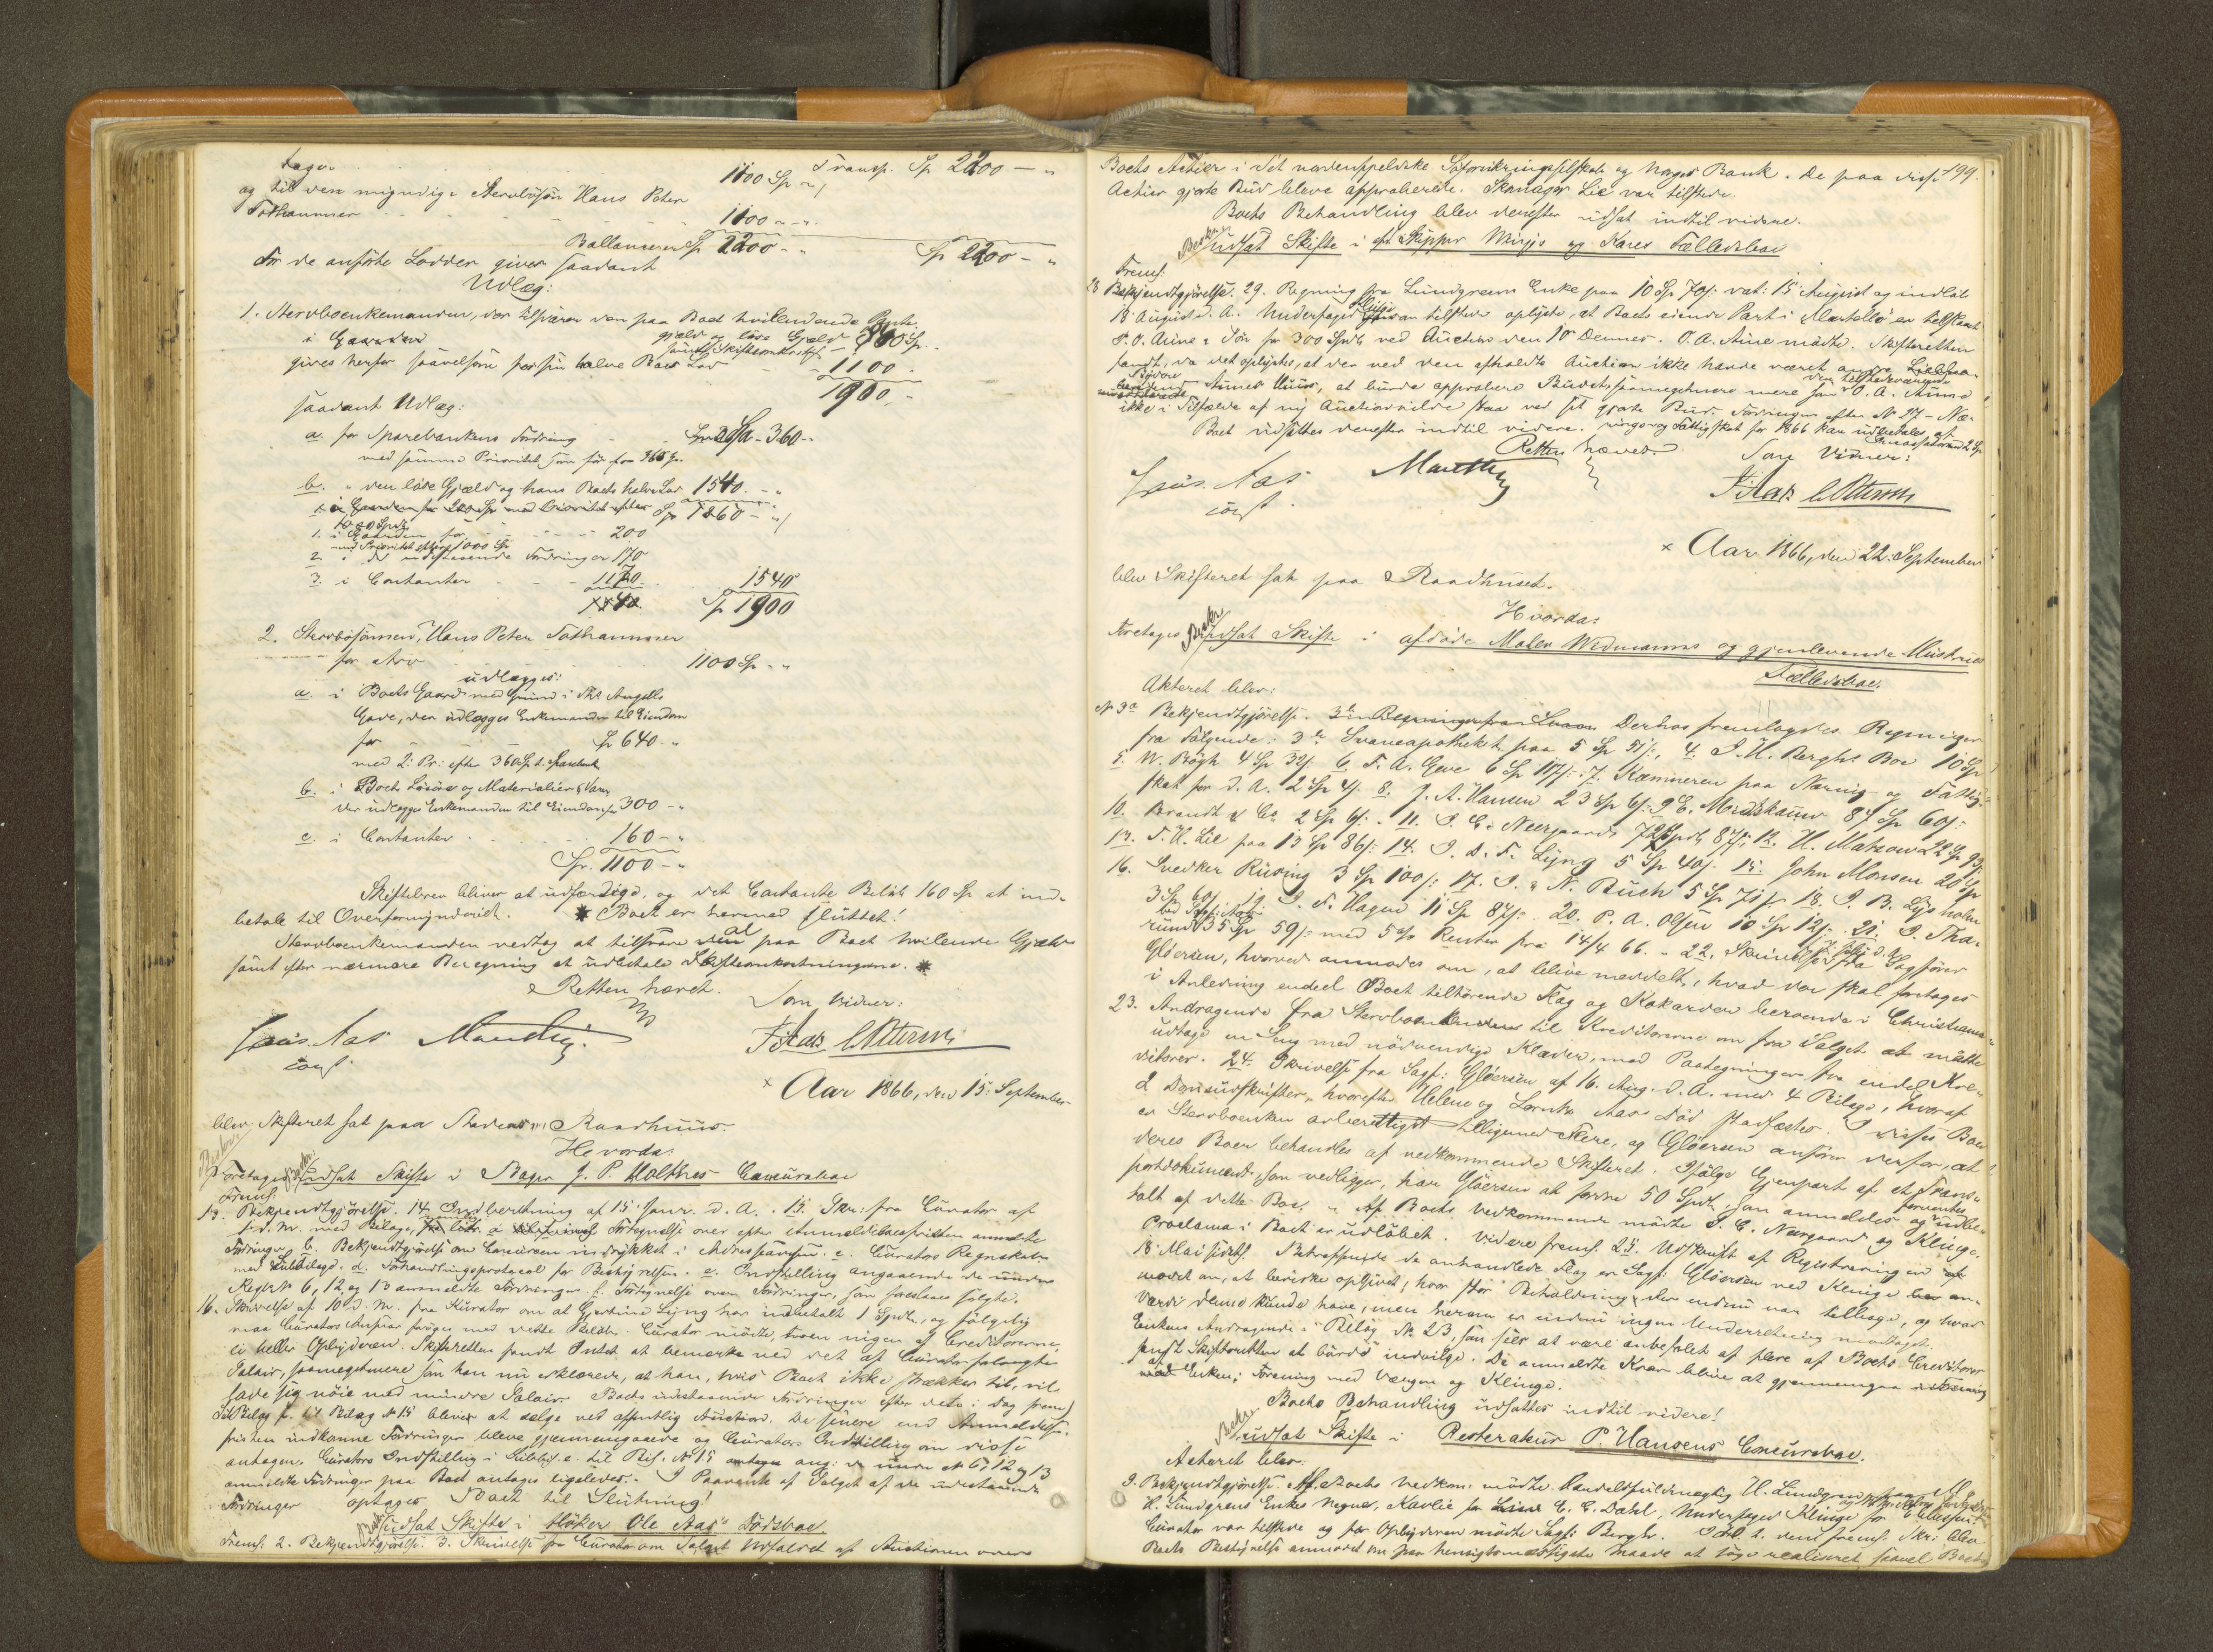 tages
Transp. Sp 2200 — "
og til den myndige Stervbosøn Hans Peter 1100 Sp "
Tothammer - - - 1100 - "
Ballancerer Sp 2200 - " Sp 2200 - "
For de anførte Lodder gives saadant
Udlæg:
1. Stervboenkemanden, der tilsvarer den paa Boet hvilende
i Gaarden gjæld og løse Gjæld
samt Skifteomkostn.
gives herfor saavelsom for sin halve Boes Lod - - 1100 -
1900 -
saadant Udlæg:
a. for Sparebankens Fordring - - 360 -
med samme Prioritet som før for 360 Sp.
b. " den løse Gjæld og hans Boets halve Lod 1540. - "
Sp 1860 - "
1. i Gaarden for - - - 200
med Prioritet efter 1000 Sp
2. i de udestaaende Fordringer 170
3. i Contanter - - - 1170 1540
Sp 1900
2. Stervbosønnen, Hans Peter Tothammer
for Arv - - 1100 Sp - "
udlægges:
a. i Boets Gaard med Grund i Ths Angells
Gade, der udlægges Enkemanden til Eiendom
for - - Sp 640 - "
med 2. Pr. efter 360 Sp t. Sparebank
b. i Boets Løsøre og Materialier & Varer
der udlægges Enkemanden til Eiendom for 300 - "
c. i Contanter - - 160 - "
Sp. 1100 - "
Skiftebrev bliver at udfærdige, og det Contante Beløb 160 Sp at ind-
betale til Overformynderiet. * Boet er hermed sluttet!
Stervboenkemanden vedtog at tilsvare al paa Boet hvilende Gjæld
samt efter nærmere Beregning at udbetale Skifteomkostningerne. *
Retten hævet.
Som Vidner:
Aas
const.
× Aar 1866, den 15. September
blev Skifteret sat paa Stadens Raadhuus.
Hvorda:
Foretages udsat Skifte i Bager J. P. Holthes Concursboe
Frems.
13. Bekjendtgjørelse. 14. Indberetning af 15 Janr. d. A. 15. Skr: fra Curator af
s. d. M. med Bilage, a Fortegnelse over efter Anmeldelsesfristen anmeldte
Fordringer b. Bekjendtgjørelse om Concursen indrykket i Adresseavisen. c. Curators Regnskab
med Subbilage. d. Forhandlingsprotocol for Bestyrelsen. e. Indstilling angaaende de under
Regl No 6, 12 og 13 anmeldte Fordringer f. Fortegnelse over Fordringer, som foreslaaes solgte.
16. Skrivelse af 10 d. M. fra Kurator om at Gjertine Lyng har indbetalt 1 Spdlr, og følgelig
maa Curators Ansvar forøges med dette Beløb. Curator mødte, hvem nigen af Creditorerne
ei heller Opbyderen. Skifteretten fandt Intet at bemærke ved det af Curator forlangte
Salair, saameget mere som han nu erklærede, at han, hvis Boet ikke strækker til, vil
lade sig nøie med mindre Salair. Boets udestaaende Fordringer efter det i Dag frems
Bilag f. til Bilag No 15 bliver at sælge ved offentlig Auction. De senere end Anmeldelses-
fristen indkomne Fordringer bleve gjennemgaaede og Curators Indstilling om disse
antagen. Curators Indstilling i Subbil. e. til Bil. No 15 ang: de under No 6, 12 og 13
anmeldte Fordringer paa Boet antages ligeledes. I Paavente af Salget af de udestaaende
Fordringer optages Boet til Slutning!
udsat Skifte i Høker Ole Aas's Dødsboe.
Frems. 2. Bekjendtgjørelse. 3. Skrivelse fra Curator om Udfaldet af Auctionen over
199.
Boets Actier i det nordenfjeldske Søforsikringsselskab og Norges Bank. De paa disse
Actier gjorte Bud bleve approberede. Skomager Lie var tilstede.
Boets Behandling blev derefter udsat indtil videre.
udsat Skifte i Skipper Mirjis og Kones Fælledsboe
Frems:
28 Bekjendtgjørelse. 29. Regning fra Lundgrens Enke paa 10 Sp 70 s. dat: 15 August og indløb
18 August d. A. Underfoged Klinge var tilstede oplyste, at Boets eiende Part i Martello er tilslaaet
P. O. Aune & Søn for 300 Spdlr ved Auction den 10 Dennes. O. A. Aune mødte. Skifteretten
fandt, da det oplystes, at der ved den afholdte Auction ikke havde været andre
Bydere Aunes Huus, at burde approbere Budet, saameget mere som den tilstedeværende O. A. Aune
ikke i Tilfælde af ny Auction vilde staa ved sit gjorte Bud. Fordringen efter No 27 - Næ-
rings- og Fattigskat for 1866 kan udbetales af
Boet udsættes derefter indtil videre.
Retten hævet.
Som Vidner:
Aas
const.
× Aar 1866, den 22. September
blev Skifteret sat paa Raadhuset.
Hvorda:
Foretages udsat Skifte i afdøde Maler Widmanns og gjenlevende Hustrues
Fælledsboe.
Akteret blev:
No 3a Bekjendtgjørelse. Derhos fremlagdes Regninger
fra Følgende: 3b Svaneapotheket paa 5 Sp 51 s:, 4. J. H. Berghs Boe 10 Sp
5. W. Bøgh 4 Sp 32 s: 6. F. A. Geve 6 Sp 117 s: 7. Kæmneren paa Nærings- og Fattig-
skat for d. A. 2 Sp 4 s. 8. J. A. Hansen 23 Sp 6 s: 9 E. Midtskauw 87 Sp 60 s:
10. Brandt & Co 2 Sp 6 s: . 11. J. C. Neergaard 72 Spdlr 87 s: 12. H. Matzow 22 Sp 93 s
13. F. H. Lie paa 13 Sp 86 s: 14. J. D. F. Lyng 5 Sp 40 s. 15. John Monsen 20 Sp
16. Snedker Rüsing 3 Sp 100 s: 17. J. & N. Buch 5 Sp 71 s 18. J. B. Lysholm
3 Sp 60 s 19. J. F. Hagen 11 Sp 87 s: 20. P. A. Olsen 10 Sp 12 s: 21. J. Tha-
rund 35 Sp 59 s: med 5% Renter fra 14/4 66. " 22. Skrivelse fra Sagfører
Gløersen, hvorved anmodes om, at blive meddelt, hvad der skal foretages
i Anledning endeel Boet tilhørende Flag og Kokarder beroende i Christiania
23. Andragende fra Stervboenken til Kreditorerne om fra Salget at maatte
udtage en Seng med nødvendige Klæder, med Paategninger fra endel Kre-
ditorer. 24. Skrivelse fra Sagf: Gløersen af 16. Aug. d. A. med 4 Bilage, hvoraf
2 Domsudskrifter, hvorefter Helene og Aas's Død stadfæstes. I disses Boer
er Stervboenken arveberettiget tilligemed Flere, og Gløersen anfører derfor, at
deres Boer behandles af vedkommende Skifteret. Ifølge Gjenpart af et Trans-
portdokument, som vedligger, har Gløersen at fordre 50 Spdlr, som anmeldes og forventes udbe-
talt af dette Boe. " Af Boets Vedkommende mødte J. C. Neergaard og Klinge.
Proclama i Boet er udløbet. Videre frems. 25. Udskrift af Registreringen af
18. Mai sidstl. Betræffende de omhandlede Flag er Sagf: Gløersen ved Klinge an-
modet om, at bevirke oplyst, hvor stor Beholdning der endnu var tilbage, og hvad
Værdi denne kunde have, men herom er endnu ingen Underretning modtaget.
Enkens Andragende i Bilag No 23, som sees at være anbefalet af flere af Boets Creditorer
fandt Skifteretten at burde indvilge. De anmeldte Krav blive at gjennemgaa
af Enken i Forening med Værgen og Klinge.
Boets Behandling udsattes indtil videre!
udsat Skifte i Restauratør P. Hansens Concursboe.
Acteret blev:
9. Bekjendtgjørelse. Af Boets Vedkom: mødte Handelsfuldmægtig H. Lundgren
H. Lundgrens Enkes Vegne, Kavlie for E. C. Dahl, Underfoged Klinge for
Curator var tilstede og for Opbyderen mødte Sagf: Bergh. frems. Skr: blev
Boets Bestyrelse anmodet om paa hensigtsmæssigste Maade at søge realiseret saavel Boets